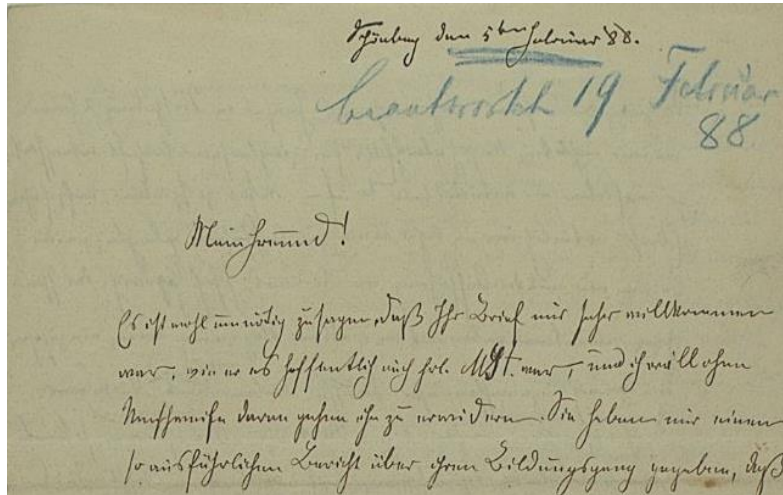 Schönberg den 5ten Februar 88.
beantwortet 19. Februar
88.
Mein Freund!
Es ist wohl unnötig zu sagen, daß Ihr Brief mir sehr willkommen
war, wie er es hoffentlich auch Frl. M. St. war, und ich will ohne
Umschweife daran gehen ihn zu erwidern. Sie haben mir einen
so ausführlichen Bericht über ihren Bildungsgang gegeben, daß